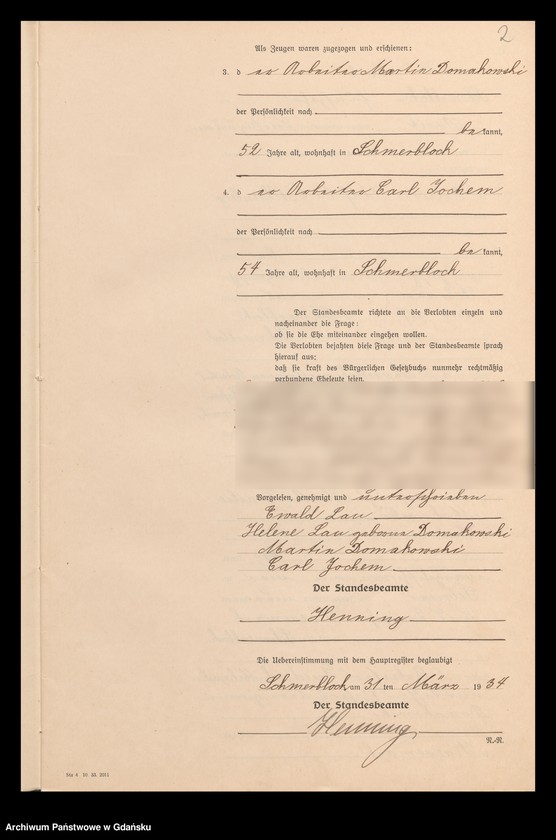 2
Als Zeugen waren zugezogen und erschienen:
3. der Arbeiter Martin Domakowski
der Persönlichkeit nach
bekannt,
52 Jahre alt, wohnhaft in Schmerblock
4. der Arbeiter Carl Jochem
der Persönlichkeit nach
bekannt,
54 Jahre alt, wohnhaft in Schmerblock
Der Standesbeamte richtete an die Verlobten einzeln und
nacheinander die Frage:
ob sie die Ehe miteinander eingehen wollen.
Die Verlobten bejahten diese Frage und der Standesbeamte sprach
hierauf aus:
daß sie kraft des Bürgerlichen Gesetzbuchs nunmehr rechtmäßig
verbundene Eheleute seien.
Vorgelesen, genehmigt und unterschrieben
Ewald Lau
Helene Lau geborene Domakowski
Martin Domakowski
Carl Jochem
Der Standesbeamte
Henning
Die Uebereinstimmung mit dem Hauptregister beglaubigt
Schmerblock am 31 ten März 1934
Der Standesbeamte
Henning
Archiwum Państwowe w Gdańsku